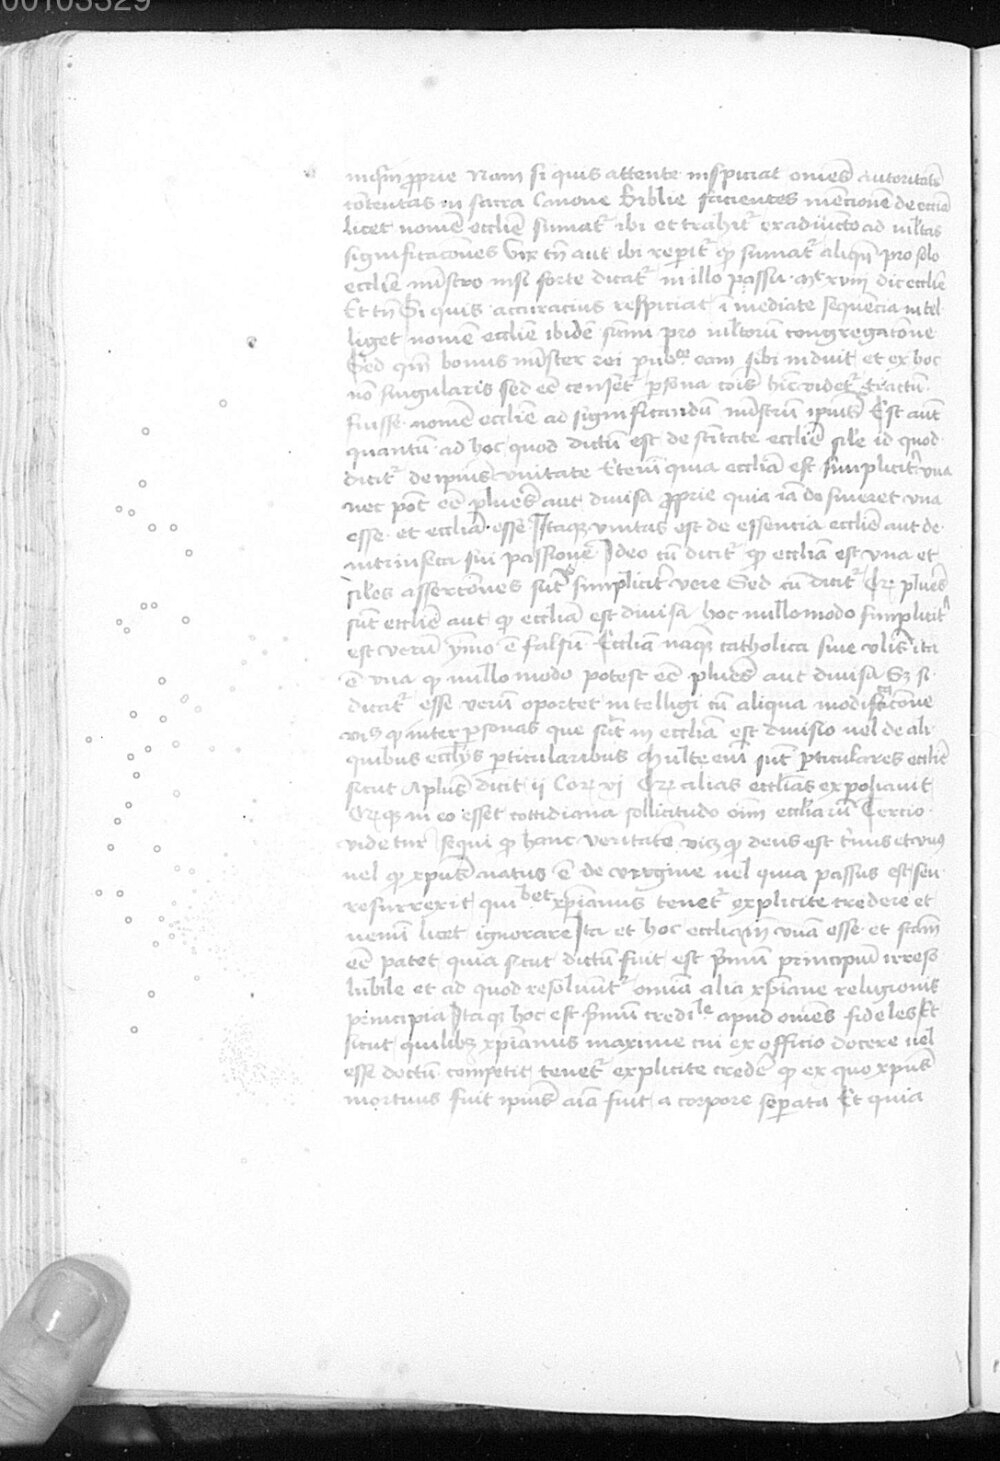 00103329
proprie Nam si quis attente inspiciat omēs autoritatēs
contentas in sacra Canone Biblie facientes mencionē de ecclia
licet nomē ecclie sumatr ibi et trahitr ex adiūcto ad ml'tas
significacōnes Vix tn̄ aut ibi reperitr qp sumatr aliqn̄ pro solo
ecclie mīstro nisi forte dicatr in illo passu mt xviii dic ecclie
Et tn̄ Si quis accuracius respiciat īmediate sequēcia intel
liget nomē ecclie ibidē sumi pro ml'torum congregacōne
Sed qm̄ bonus mīster rei pub. eam sibi induit et ex hoc
nō singularis sed eē censetr psona cōis hīc videtr tractū
fuisse nomē ecclie ad significandū mīstrū ipius Est aūt
quantū ad hoc quod dictū est de sc̄itate ecclie sil'e id quod
dicitr de ipius vnitate Eteni quia ecclia est simplicitr vna
nec pōt eē plures aut diuisa proprie quia iā desineret vna
esse et ecclia esse Itaqz vnitas est de essencia ecclie aut de
intrinseca sui passione Ideo cū dicitr qp ecclia est vna et
sil'es assercōnes sūt simplicitr vere Sed cū dicitr qp plures
sūt ecclie aut qp ecclia est diuisa hoc nullomodo simplicitr
est verū ymo ē falsū Ecclia naqz catholica siue vl'is ita
ē vna qp nullo modo potest eē plures aut diuisa Sz si
dicatr esse verū oportet intelligi cū aliqua modificacōne
vis qp inter psonas que sūt in ecclia est diuisio uel de ali
quibus eccliis pticularibus Multe eni sūt pticulares ecclie
sicut Aplus dicit ii Cor xi qp alias ecclias expoliauit
qp in eo esset cottidiana sollicitudo oīm eccliarū Tercio
videtur sequi qp hanc veritatē vicz qp deus est trinus et vnus
uel qp xpus natus ē de virgine uel quia passus est seu
resurrexit quibet xpianus tenetr explicite credere et
nemini licet ignorare Ita et hoc eccliam vnā esse et sc̄am
eē patet quia sicut dictū fuit est primū principiū irreso
lubile et ad quod resoluūtr omīa alia xpiane religionis
principia Itaqz hoc est primū credile apud omēs fideles Et
sicut quilibz xpianus maxime cui ex officio docere uel
esse doctū competit tenetr explicite credē qp ex quo xpus
mortuus fuit ipius aīa fuit a corpore separata Et quia